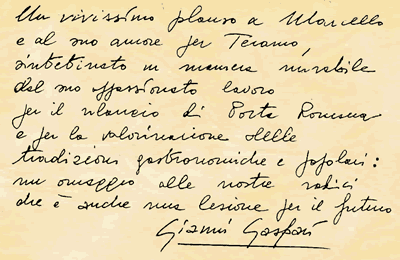 Un vivissimo plauso a Marcello
e al suo amore per Teramo,
sintetizzato in maniera mirabile
dal suo appassionato lavoro
per il rilancio di Porta Romana
e per la valorizzazione delle
tradizioni gastronomiche e popolari:
un omaggio alle nostre radici
che è anche una lezione per il futuro
Gianni Gaspari